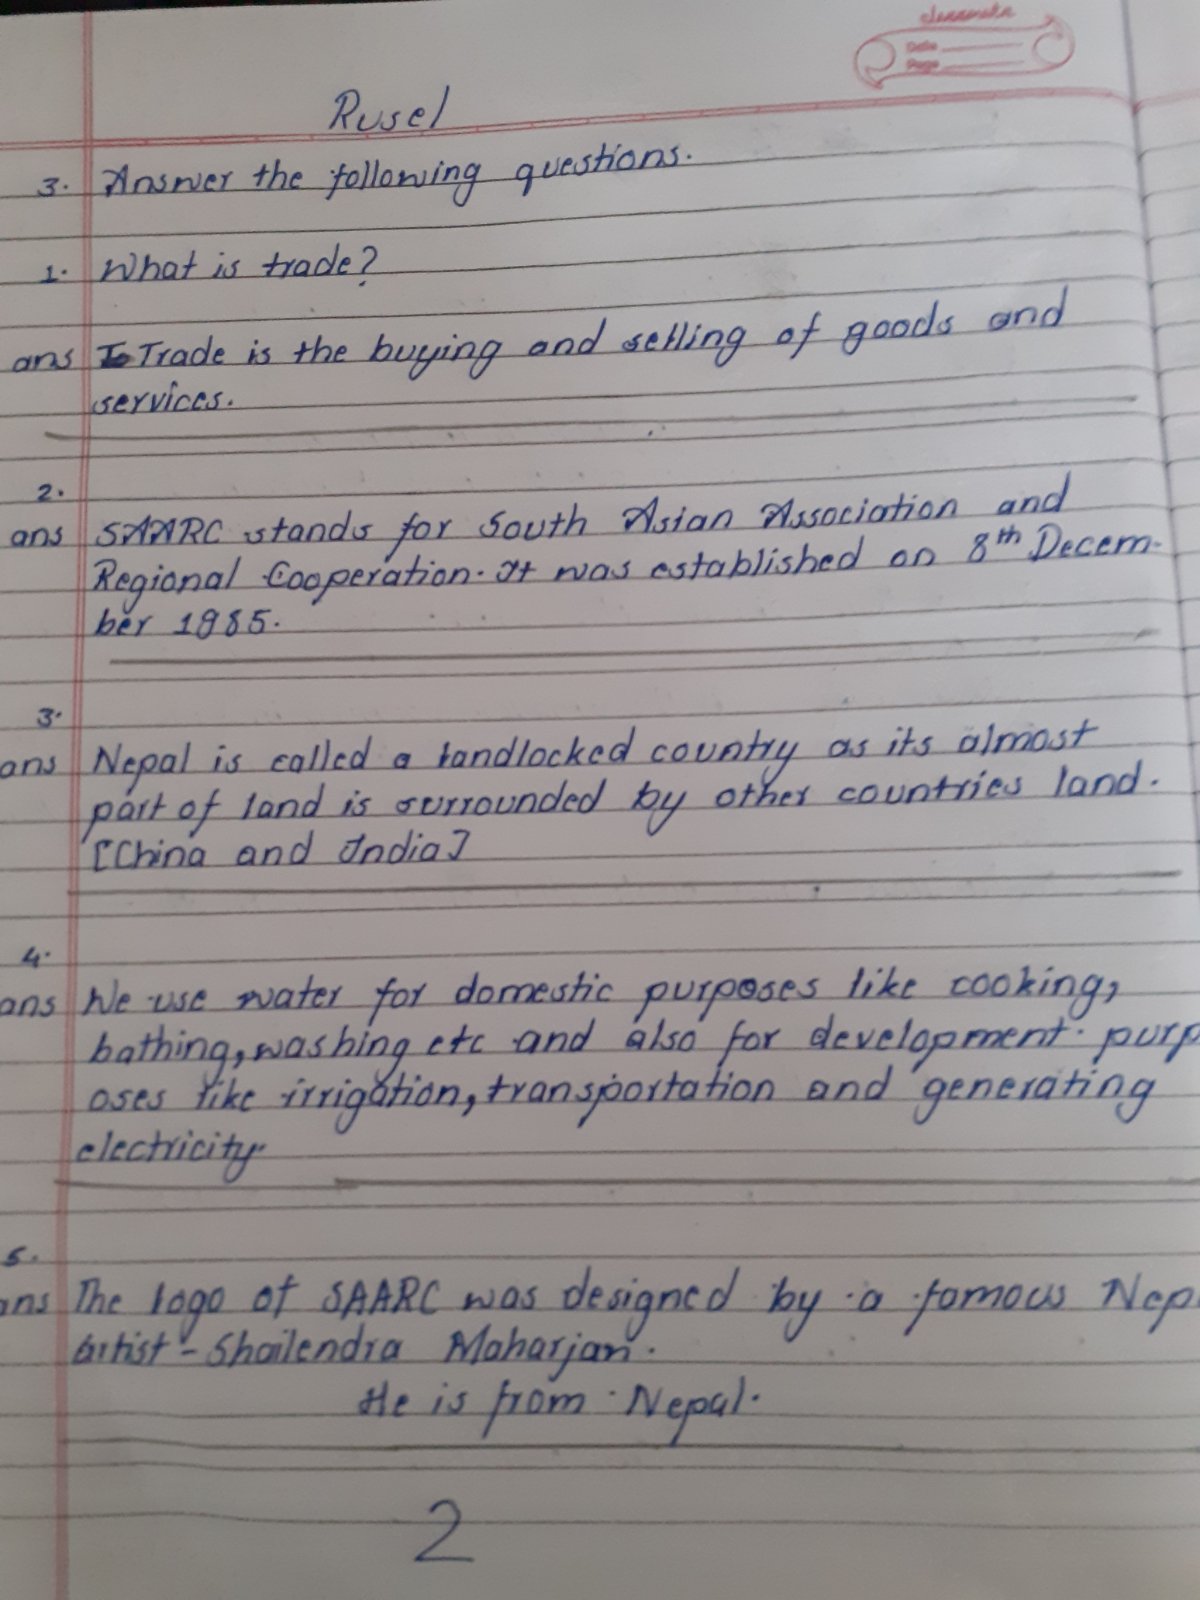 classmate
Date
Page
Rusel
3. Answer the following questions.
1. What is trade?
ans Trade is the buying and selling of goods and
services.
2.
ans SAARC stands for South Asian Association and
Regional Cooperation. It was established on 8th Decem-
ber 1985.
3.
ans Nepal is called a landlocked country as its almost
part of land is surrounded by other countries land.
[China and India]
4.
ans We use water for domestic purposes like cooking,
bathing, washing etc and also for development purp
oses like irrigation, transportation and generating
electricity.
5.
ans The logo of SAARC was designed by a famous Nep
artist - Shailendra Maharjan.
He is from Nepal.
2